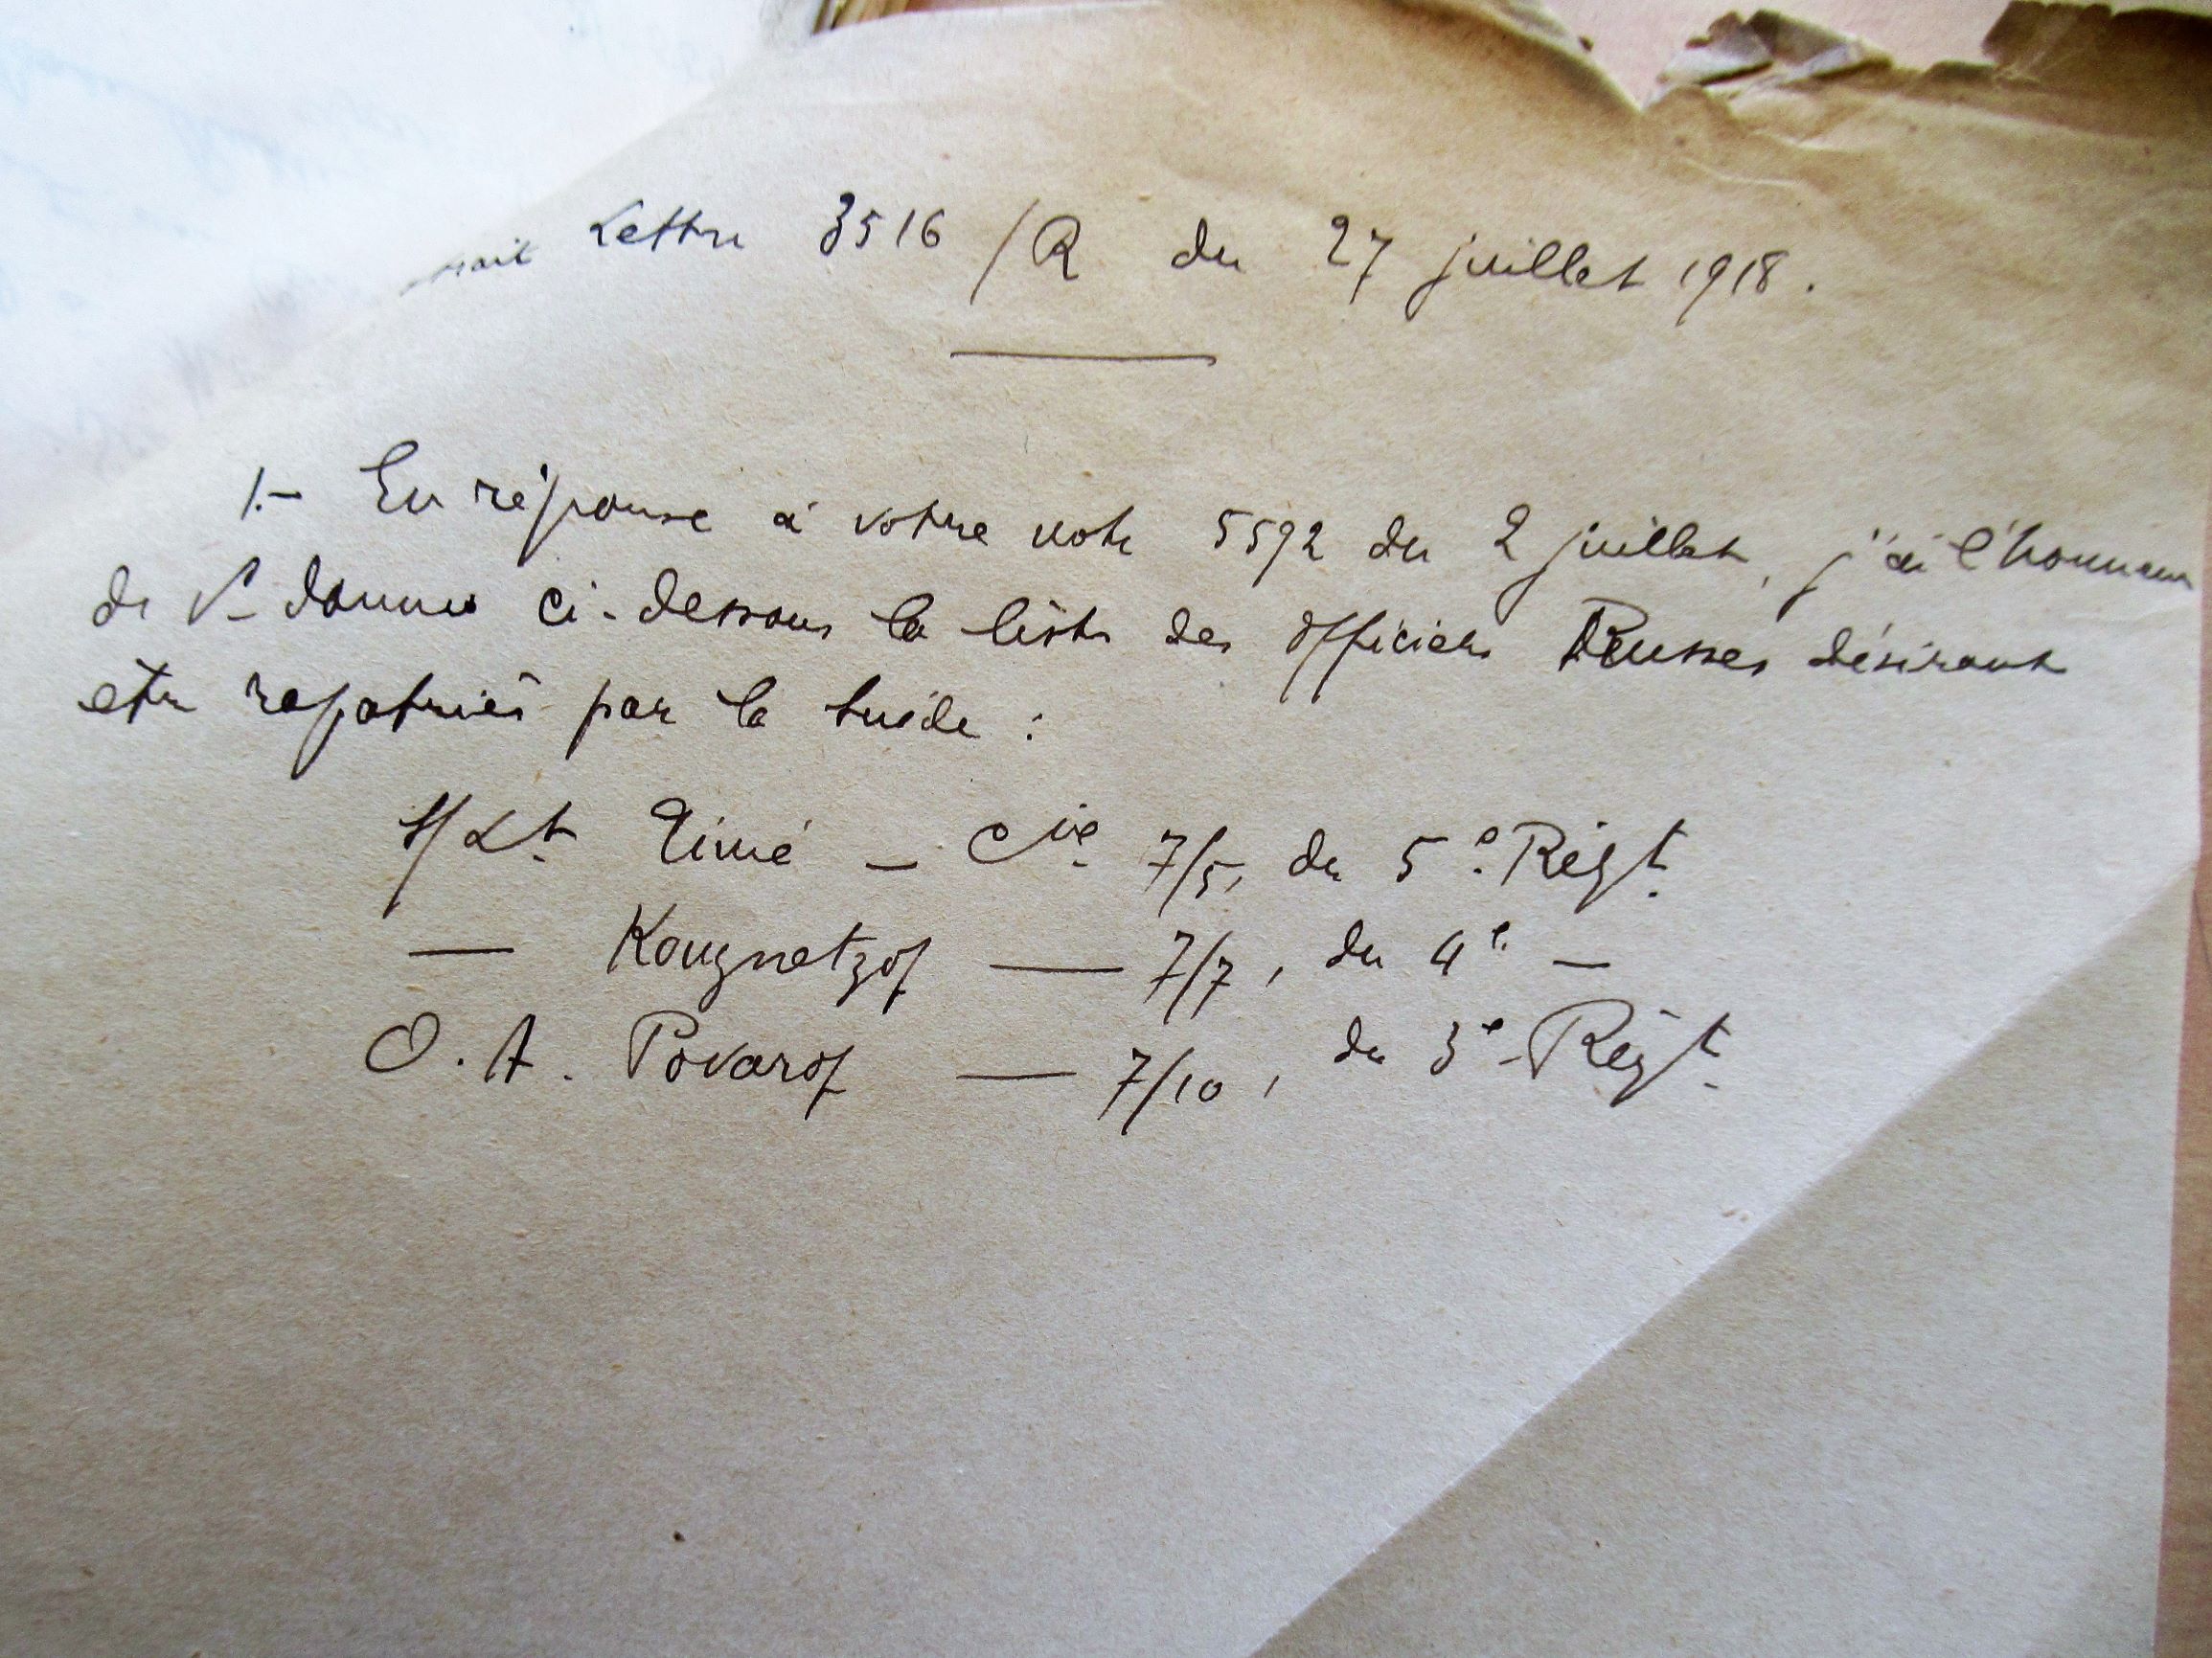 Lettre 3516 /R du 27 juillet 1918.
1.- En réponse à votre note 5592 du 2 juillet, j'ai l'honneur
de V. donner ci-dessous la liste des officiers Russes désirant
etre rapatriés par la Suède :
S/Lt. Eimé - Cie 7/5, du 5e Régt.
— Kouznetzof — 7/7, du 4e —
O. A. Povarof — 7/10, du 3e Régt.